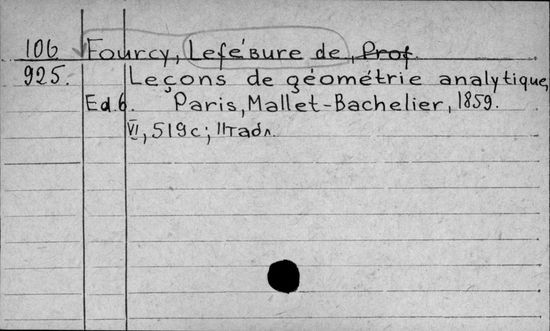 106 Fourcy, Lefébure de, Prof.
925. Leçons de géométrie analytique,
Ed. 6. Paris, Mallet-Bachelier, 1859.
VI, 519 с; 11 табл.